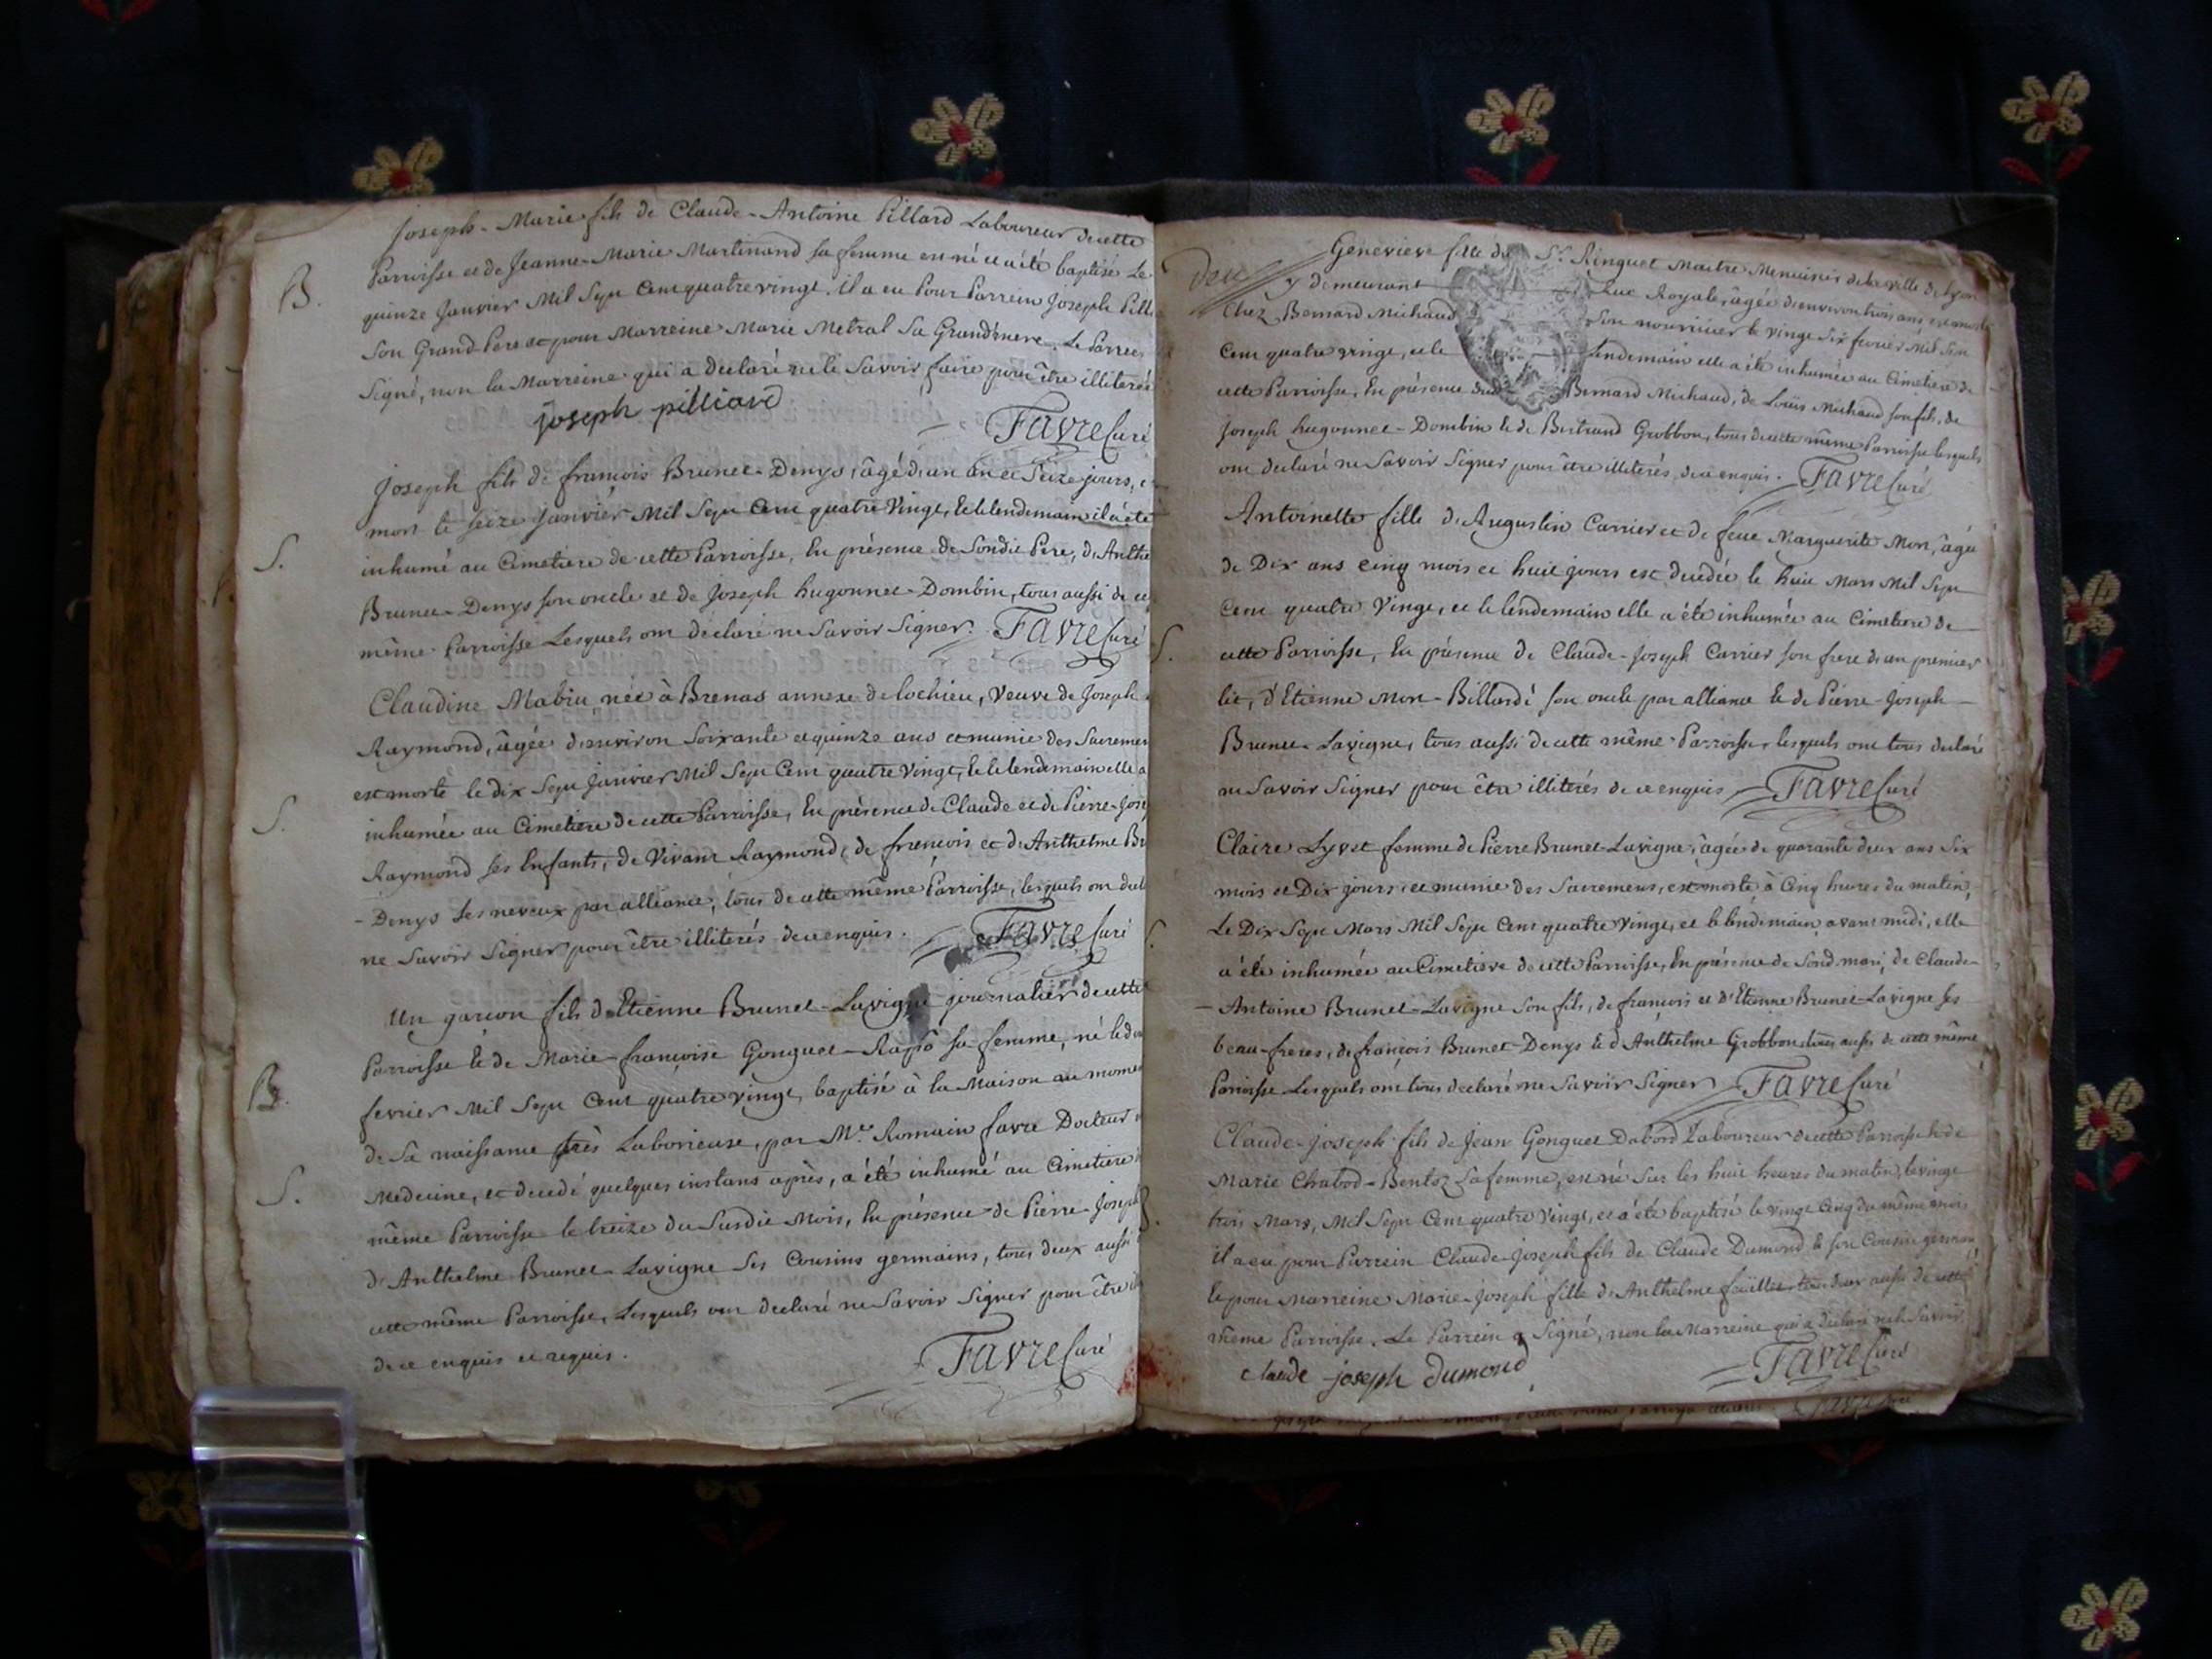 Joseph-Marie fils de Claude-Antoine Pillard Laboureur de cette
B.
Parroisse et de Jeanne-Marie Martinand sa femme est né et a été baptisé Le
quinze Janvier Mil Sept Cent quatre vingt. il a eu Pour Parrein Joseph Pill
Son Grand Pere et pour Marreine Marie Metral Sa Grand'mere. Le Parrein
Signé, non la Marreine qui a déclaré ne le Savoir faire pour être illiterée
joseph pilliard
Favre Curé
Joseph fils de françois Brunet-Denys, âgé d'un an et Seize jours,
mort le seize Janvier Mil Sept Cent quatre Vingt, et le lendemain il a été
S.
inhumé au Cimetiere de cette Parroisse, En présence de Sondit Pere, d'Anthe
Brunet-Denys son oncle et de Joseph hugonnet-Dombin, tous aussi de ce
même Parroisse Lesquels ont déclaré ne Savoir Signer. Favre Curé
Claudine Mabiu, née à Brenas annexe de lochieu, Veuve de Joseph
Raymond, âgée d'environ Soixante et quinze ans et munie des Sacremen
est morte le dix Sept Janvier Mil Sept Cent quatre Vingt, et le lendemain elle a
S.
inhumée au Cimetiere de cette Parroisse, En présence de Claude et de Pierre-Jose
Raymond ses Enfants, de Vivant Raymond, de françois et d'Anthelme Br
-Denys ses neveux par alliance, tous de cette même Parroisse, lesquels ont décl
ne Savoir Signer pour être illiterés de ce enquis. Favre Curé
Un garcon fils d'Etienne Brunet-Lavigne journalier de cette
Parroisse et de Marie-francoise Gonguet-Rapin sa femme, né le
B.
fevrier Mil Sept Cent quatre vingt, baptisé à la Maison au mome
de Sa naissance très Laborieuse, par Mre Romain favre Docteur
Medecine, et decedé quelques instans après, a été inhumé au Cimetiere
S.
même Parroisse le treize du Susdit Mois, En présence de Pierre-Joseph
d'Anthelme Brunet-Lavigne Ses Cousins germains, tous deux aussi
cette même Parroisse, Lesquels ont declaré ne Savoir Signer pour être
de ce enquis et requis.
Favre Curé
Genevieve fille du Sr. Ringuet Maitre Menuisier de la ville de Lyon
y demeurant Rue Royale, âgée d'environ trois ans est morte
Chez Bernard Michaud Son nourricier le vingt Six fevrier Mil Sept
Cent quatre vingt, et le lendemain elle a été inhumée au Cimetiere de
cette Parroisse, En présence dudit Bernard Michaud, de Loüis Michaud son fils, de
Joseph hugonnet-Dombin et de Bertrand Grobbon, tous de cette même Parroisse lesquels
ont declaré ne Savoir Signer pour être illiterés, de ce enquis. Favre Curé
Antoinette fille d'Augustin Carrier et de feue Marguerite Mon, âgée
de Dix ans cinq mois et huit jours est decedée le huit Mars Mil Sept
Cent quatre Vingt, et le lendemain elle a été inhumée au Cimetiere de
S.
cette Parroisse, En présence de Claude-Joseph Carrier son frere d'un premier
lit, d'Etienne Mon-Billardé son oncle par alliance et de Pierre-Joseph
Brunet-Lavigne, tous aussi de cette même Parroisse, lesquels ont tous declaré
ne Savoir Signer pour être illiterés de ce enquis Favre Curé
Claire Lyvet femme de Pierre Brunet-Lavigne, âgée de quarante deux ans Six
mois et Dix jours et munie des Sacremens, est morte à Cinq heures du matin,
Le Dix Sept Mars Mil Sept Cent quatre Vingt, et le lendemain avant midi, elle
a été inhumée au Cimetiere de cette Parroisse, En présence de Sond. mari, de Claude-
-Antoine Brunet-Lavigne Son fils, de françois et d'Etienne Brunet-Lavigne ses
beau-freres, de françois Brunet-Denys et d'Anthelme Grobbon, tous aussi de cette même
Parroisse Lesquels ont tous declaré ne Savoir Signer Favre Curé
Claude-Joseph fils de Jean Gonguet Dabord Laboureur de cette Parroisse et de
Marie Chabod-Bentoz Sa femme, est né Sur les huit heures du matin, le vingt
trois Mars, Mil Sept Cent quatre Vingt, et a été baptisé le vingt Cinq du même mois
il a eu pour Parrein Claude-Joseph fils de Claude Dumond et son Cousin germain,
et pour Marreine Marie-Joseph fille d'Anthelme feüillet tous deux aussi de cette
même Parroisse. Le Parrein a Signé, non la Marreine qui a declaré ne le Savoir
claude joseph dumond
Favre Curé